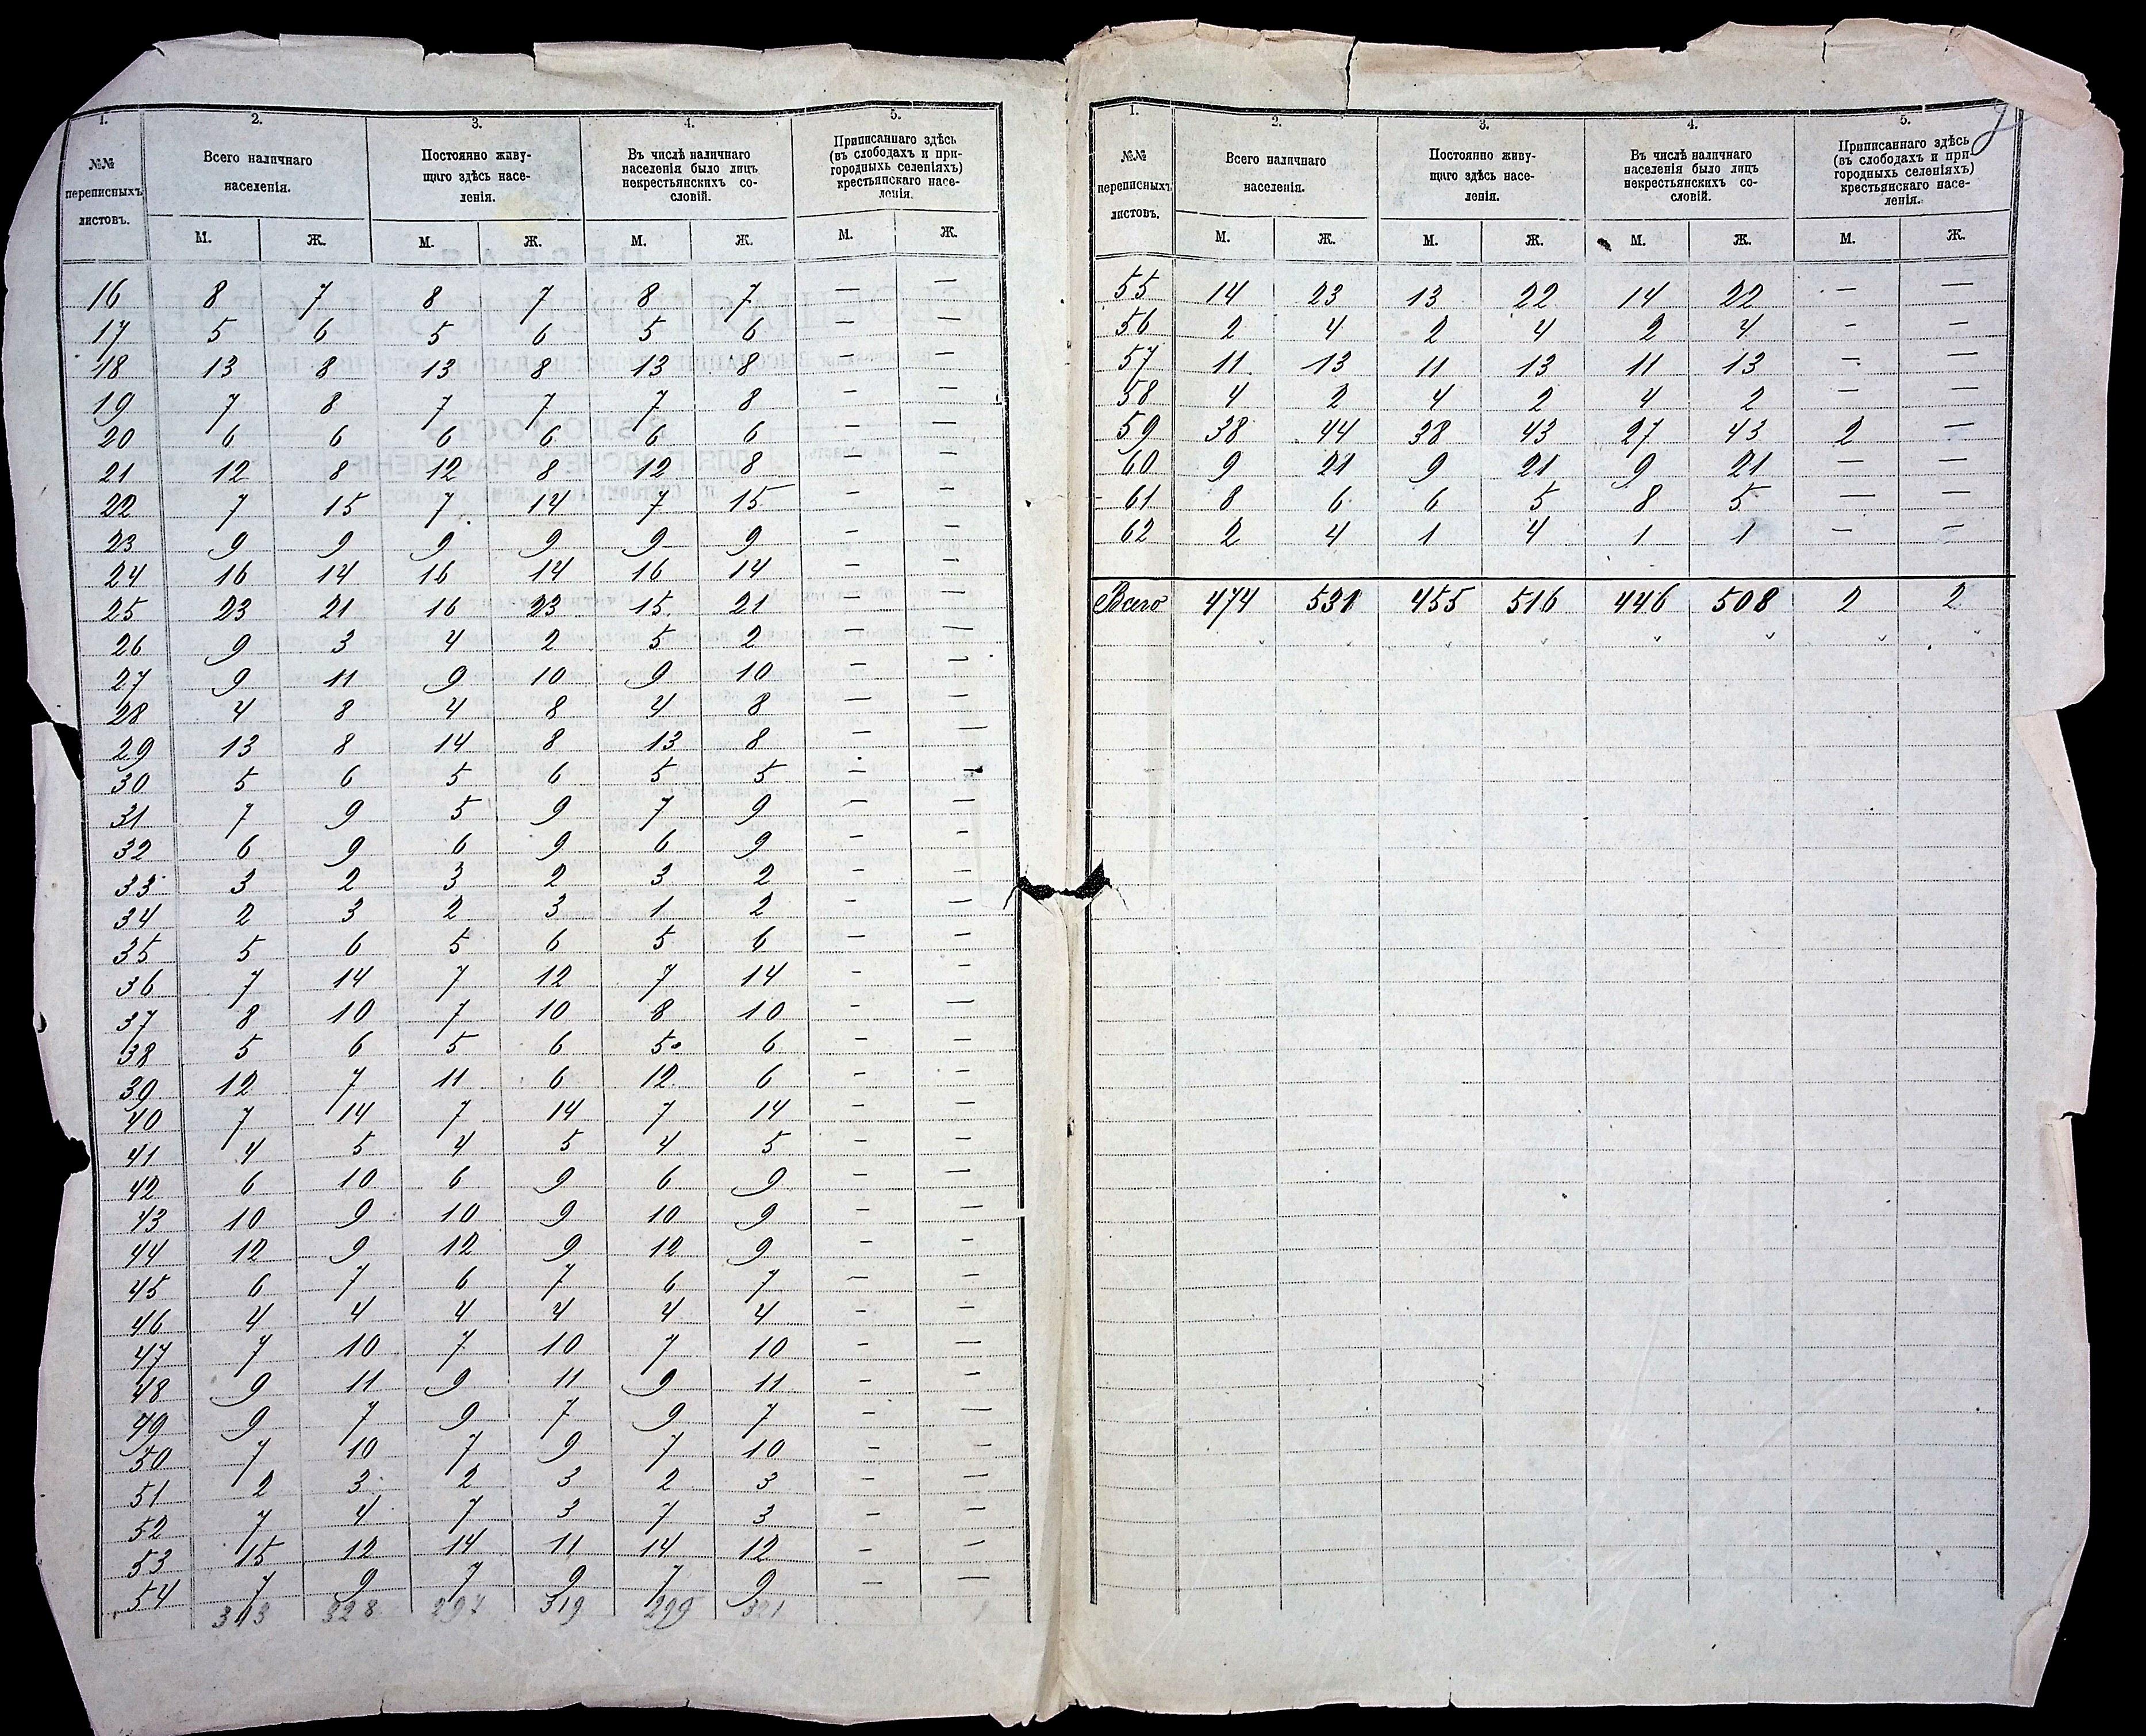 1. 2. 3. 4. 5.
№№ переписныхъ листовъ. Всего наличнаго населенія. Постоянно живущаго здѣсь населенія. Въ числѣ наличнаго населенія было лицъ некрестьянскихъ сословій. Приписаннаго здѣсь (въ слободахъ и пригородныхъ селеніяхъ) крестьянскаго населенія.
М. Ж. М. Ж. М. Ж. М. Ж.
16 8 7 8 7 8 7 — —
17 5 6 5 6 5 6 — —
18 13 8 13 8 13 8 — —
19 7 8 7 7 7 8 — —
20 6 6 6 6 6 6 — —
21 12 8 12 8 12 8 — —
22 7 15 7 14 7 15 — —
23 9 9 9 9 9 9 — —
24 16 14 16 14 16 14 — —
25 23 21 16 23 15 21 — —
26 9 3 4 2 5 2 — —
27 9 11 9 10 9 10 — —
28 4 8 4 8 4 8 — —
29 13 8 14 8 13 8 — —
30 5 6 5 6 5 5 — —
31 7 9 5 9 7 9 — —
32 6 9 6 9 6 9 — —
33 3 2 3 2 3 2 — —
34 2 3 2 3 1 2 — —
35 5 6 5 6 5 6 — —
36 7 14 7 12 7 14 — —
37 8 10 7 10 8 10 — —
38 5 6 5 6 5 6 — —
39 12 7 11 6 12 6 — —
40 7 14 7 14 7 14 — —
41 4 5 4 5 4 5 — —
42 6 10 6 9 6 9 — —
43 10 9 10 9 10 9 — —
44 12 9 12 9 12 9 — —
45 6 7 6 7 6 7 — —
46 4 4 4 4 4 4 — —
47 7 10 7 10 7 10 — —
48 9 11 9 11 9 11 — —
49 9 7 9 7 9 7 — —
50 7 10 7 9 7 10 — —
51 2 3 2 3 2 3 — —
52 7 4 7 3 7 3 — —
53 15 12 14 11 14 12 — —
54 7 9 7 9 7 9 — —
313 328 297 319 299 321
1. 2. 3. 4. 5.
№№ переписныхъ листовъ. Всего наличнаго населенія. Постоянно живущаго здѣсь населенія. Въ числѣ наличнаго населенія было лицъ некрестьянскихъ сословій. Приписаннаго здѣсь (въ слободахъ и пригородныхъ селеніяхъ) крестьянскаго населенія.
М. Ж. М. Ж. М. Ж. М. Ж.
55 14 23 13 22 14 22 — —
56 2 4 2 4 2 4 — —
57 11 13 11 13 11 13 — —
58 4 2 4 2 4 2 — —
59 38 44 38 43 27 43 2 —
60 9 21 9 21 9 21 — —
61 8 6 6 5 8 5 — —
62 2 4 1 4 1 1 — —
Всего 474 531 455 516 446 508 2 2